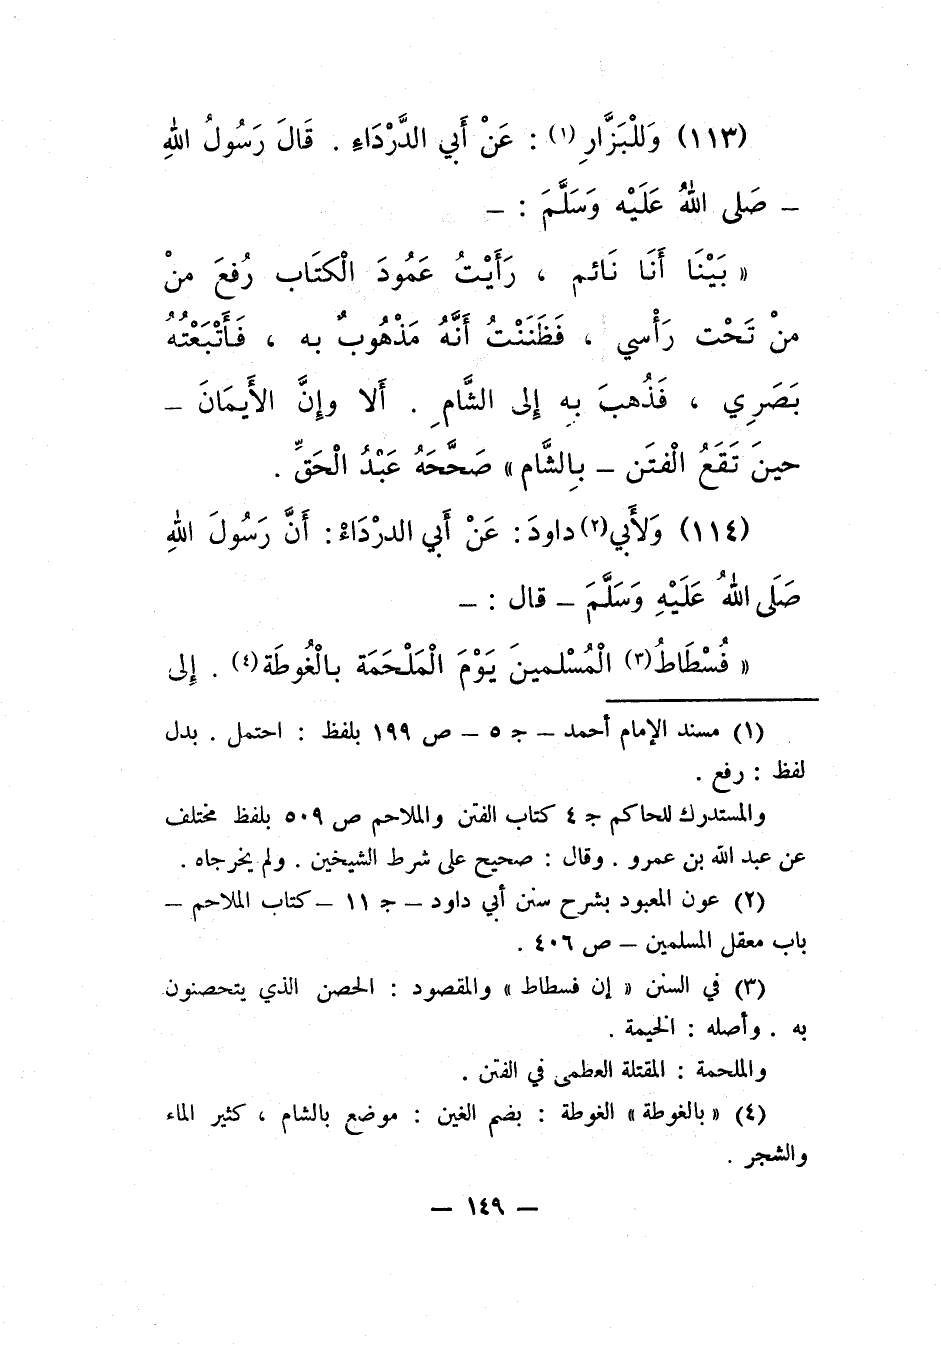 (١١٣) وَلِلْبَزَّارِ (١) : عَنْ أَبي الدَّرْدَاءِ . قَالَ رَسُولُ اللهِ
ـ صَلى اللهُ عَلَيْه وَسَلَّمَ : ـ
« بَيْنَا أَنَا نَائم ، رَأَيْتُ عَمُودَ الْكتَاب رُفعَ منْ
منْ تَحْت رَأْسي ، فَظَنَنْتُ أَنَّهُ مَذْهُوبٌ به ، فَأَتْبَعْتُهُ
بَصَرِي ، فَذُهبَ بِه إلى الشَّامِ . أَلا وإنَّ الأَيمَانَ ـ
حينَ تَقَعُ الْفتَن ـ بِالشَّام » صَحَّحَهُ عَبْدُ الْحَقِّ .
(١١٤) وَلأَبي(٢) داودَ : عَنْ أَبي الدرْدَاءْ : أَنَّ رَسُولَ اللهِ
صَلَى اللهُ عَلَيْهِ وَسَلَّمَ ـ قال : ـ
« فُسْطَاطُ(٣) الْمُسْلمينَ يَوْمَ الْمَلْحَمَة بالْغُوطَة(٤) . إلى
(١) مسند الإمام أحمد ـ جـ ٥ ـ ص ١٩٩ بلفظ : احتمل . بدل
لفظ : رفع .
والمستدرك للحاكم جـ ٤ كتاب الفتن والملاحم ص ٥٠٩ بلفظ مختلف
عن عبد الله بن عمرو . وقال : صحيح على شرط الشيخين . ولم يخرجاه .
(٢) عون المعبود بشرح سنن أبي داود ـ جـ ١١ ـ كتاب الملاحم ـ
باب معقل المسلمين ـ ص ٤٠٦ .
(٣) في السنن « إن فسطاط » والمقصود : الحصن الذي يتحصنون
به . وأصله : الخيمة .
والملحمة : المقتلة العظمى في الفتن .
(٤) « بالغوطة » الغوطة : بضم الغين : موضع بالشام ، كثير الماء
والشجر .
ـ ١٤٩ ـ